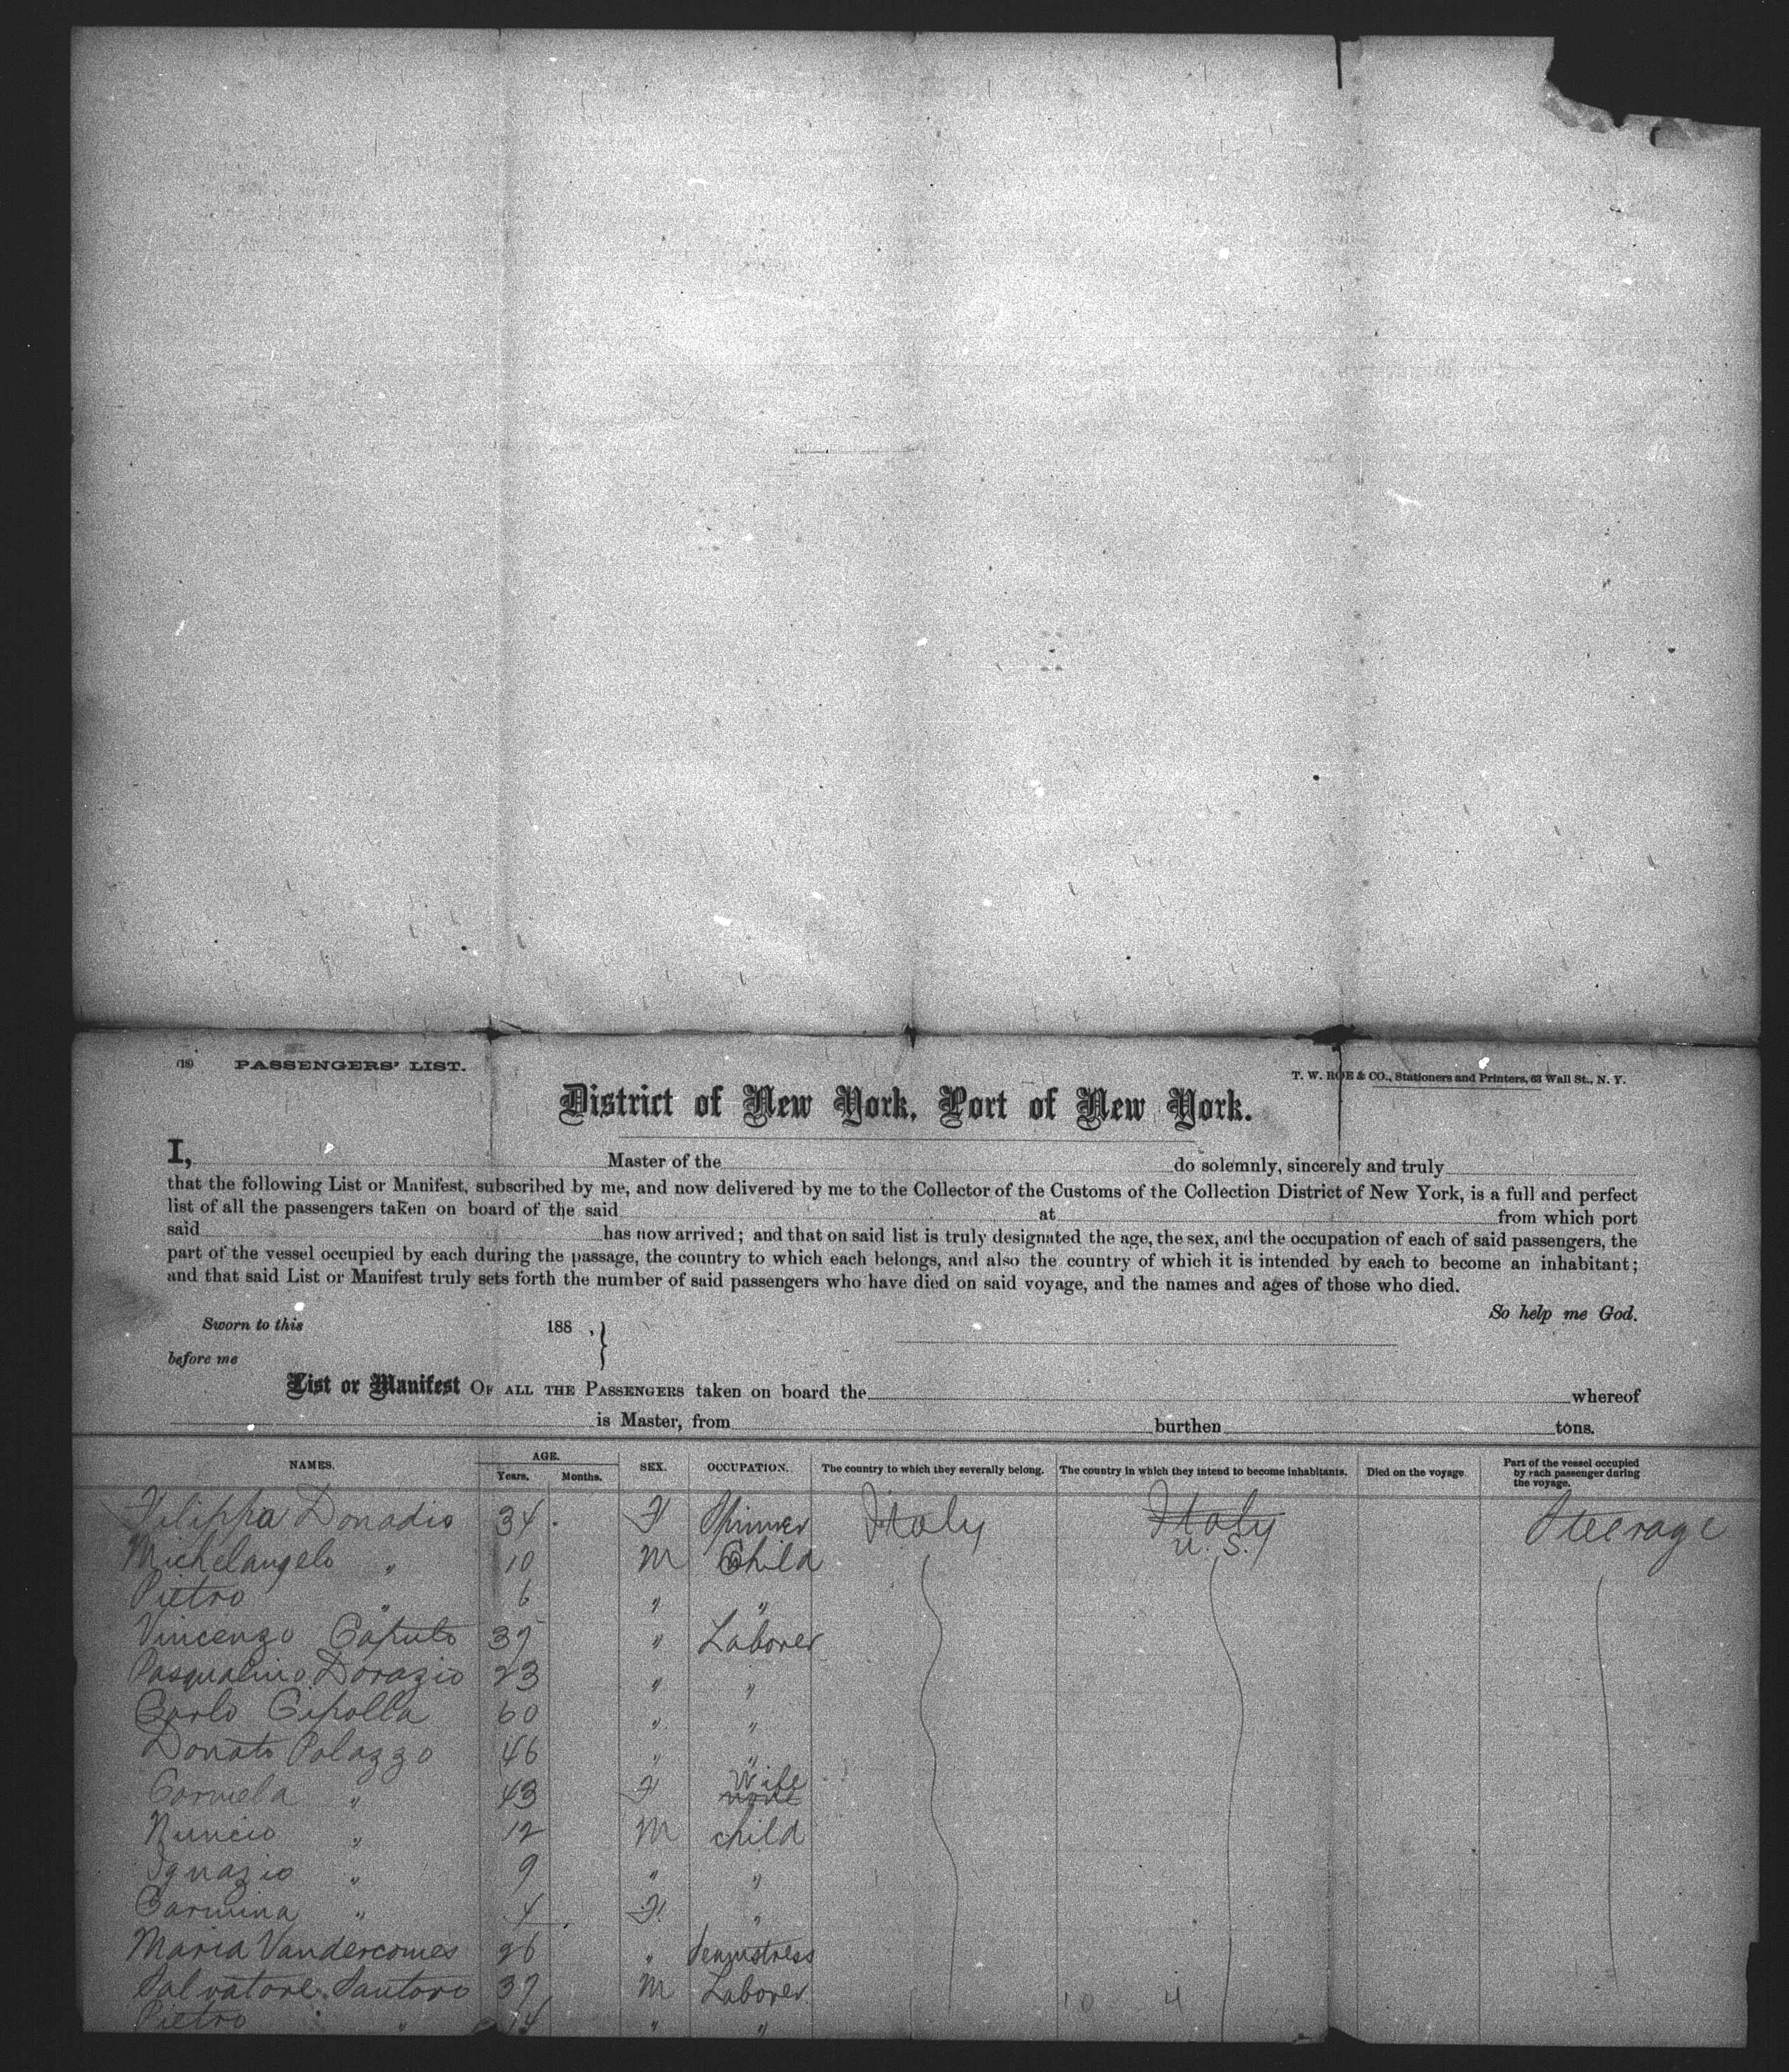 (18) PASSENGERS' LIST.
T. W. ROE & CO., Stationers and Printers, 63 Wall St., N. Y.
District of New York, Port of New York.
I, Master of the do solemnly, sincerely and truly
that the following List or Manifest, subscribed by me, and now delivered by me to the Collector of the Customs of the Collection District of New York, is a full and perfect
list of all the passengers taken on board of the said at from which port
said has now arrived; and that on said list is truly designated the age, the sex, and the occupation of each of said passengers, the
part of the vessel occupied by each during the passage, the country to which each belongs, and also the country of which it is intended by each to become an inhabitant;
and that said List or Manifest truly sets forth the number of said passengers who have died on said voyage, and the names and ages of those who died.
So help me God.
Sworn to this 188 ,
before me
List or Manifest OF ALL THE PASSENGERS taken on board the whereof
is Master, from burthen tons.
NAMES. AGE. Years. Months. SEX. OCCUPATION. The country to which they severally belong. The country in which they intend to become inhabitants. Died on the voyage. Part of the vessel occupied by each passenger during the voyage.
Filippa Donadio 34 F Spinner Italy Italy Steerage
U. S.
Michelangelo " 10 M Child
Pietro " 6 " "
Vincenzo Caputo " Laborer
Pasqualino Dorazio 23 " "
Carlo Cipolla 60 " "
Donato Palazzo 46 " "
Carmela " 43 F Wife none
Nuncio " 12 M child
Ignazio " 9 " "
Carmina " 4 F. "
Maria Vandercomes 26 " Seamstress
Salvatore Santoro 37 M Laborer
10 4
Pietro " 14 " "